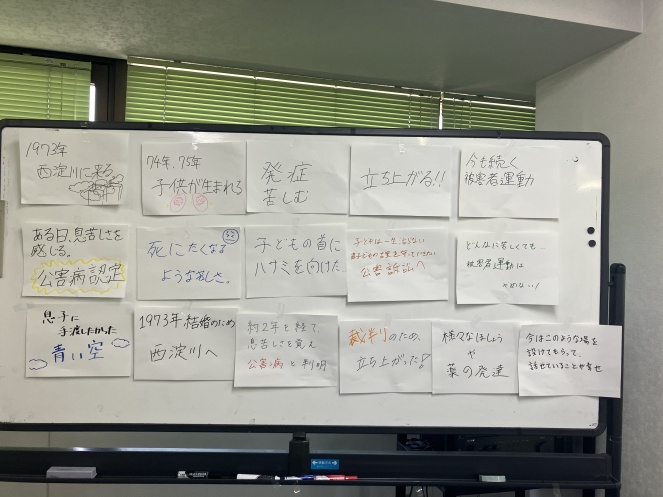 1973年
西淀川に来る
74年.75年
子供が生まれる
発症
苦しむ
立ち上がる!!
今も続く
被害者運動
ある日、息苦しさを
感じる。
公害病認定
死にたくなる
ような苦しさ。
子どもの首に
ハサミを向けた
子どもは一生治らない
公害訴訟へ
どんなに苦しくても…
被害者運動は
やめない!
息子に
手渡したかった
青い空
1973年 結婚のため
西淀川へ
約2年を経て、
息苦しさを覚え
公害病と判明
裁判のため、
立ち上がった!
様々なほしょう
や
薬の発達
今はこのような場を
設けてもらって、
話せていることが幸せ